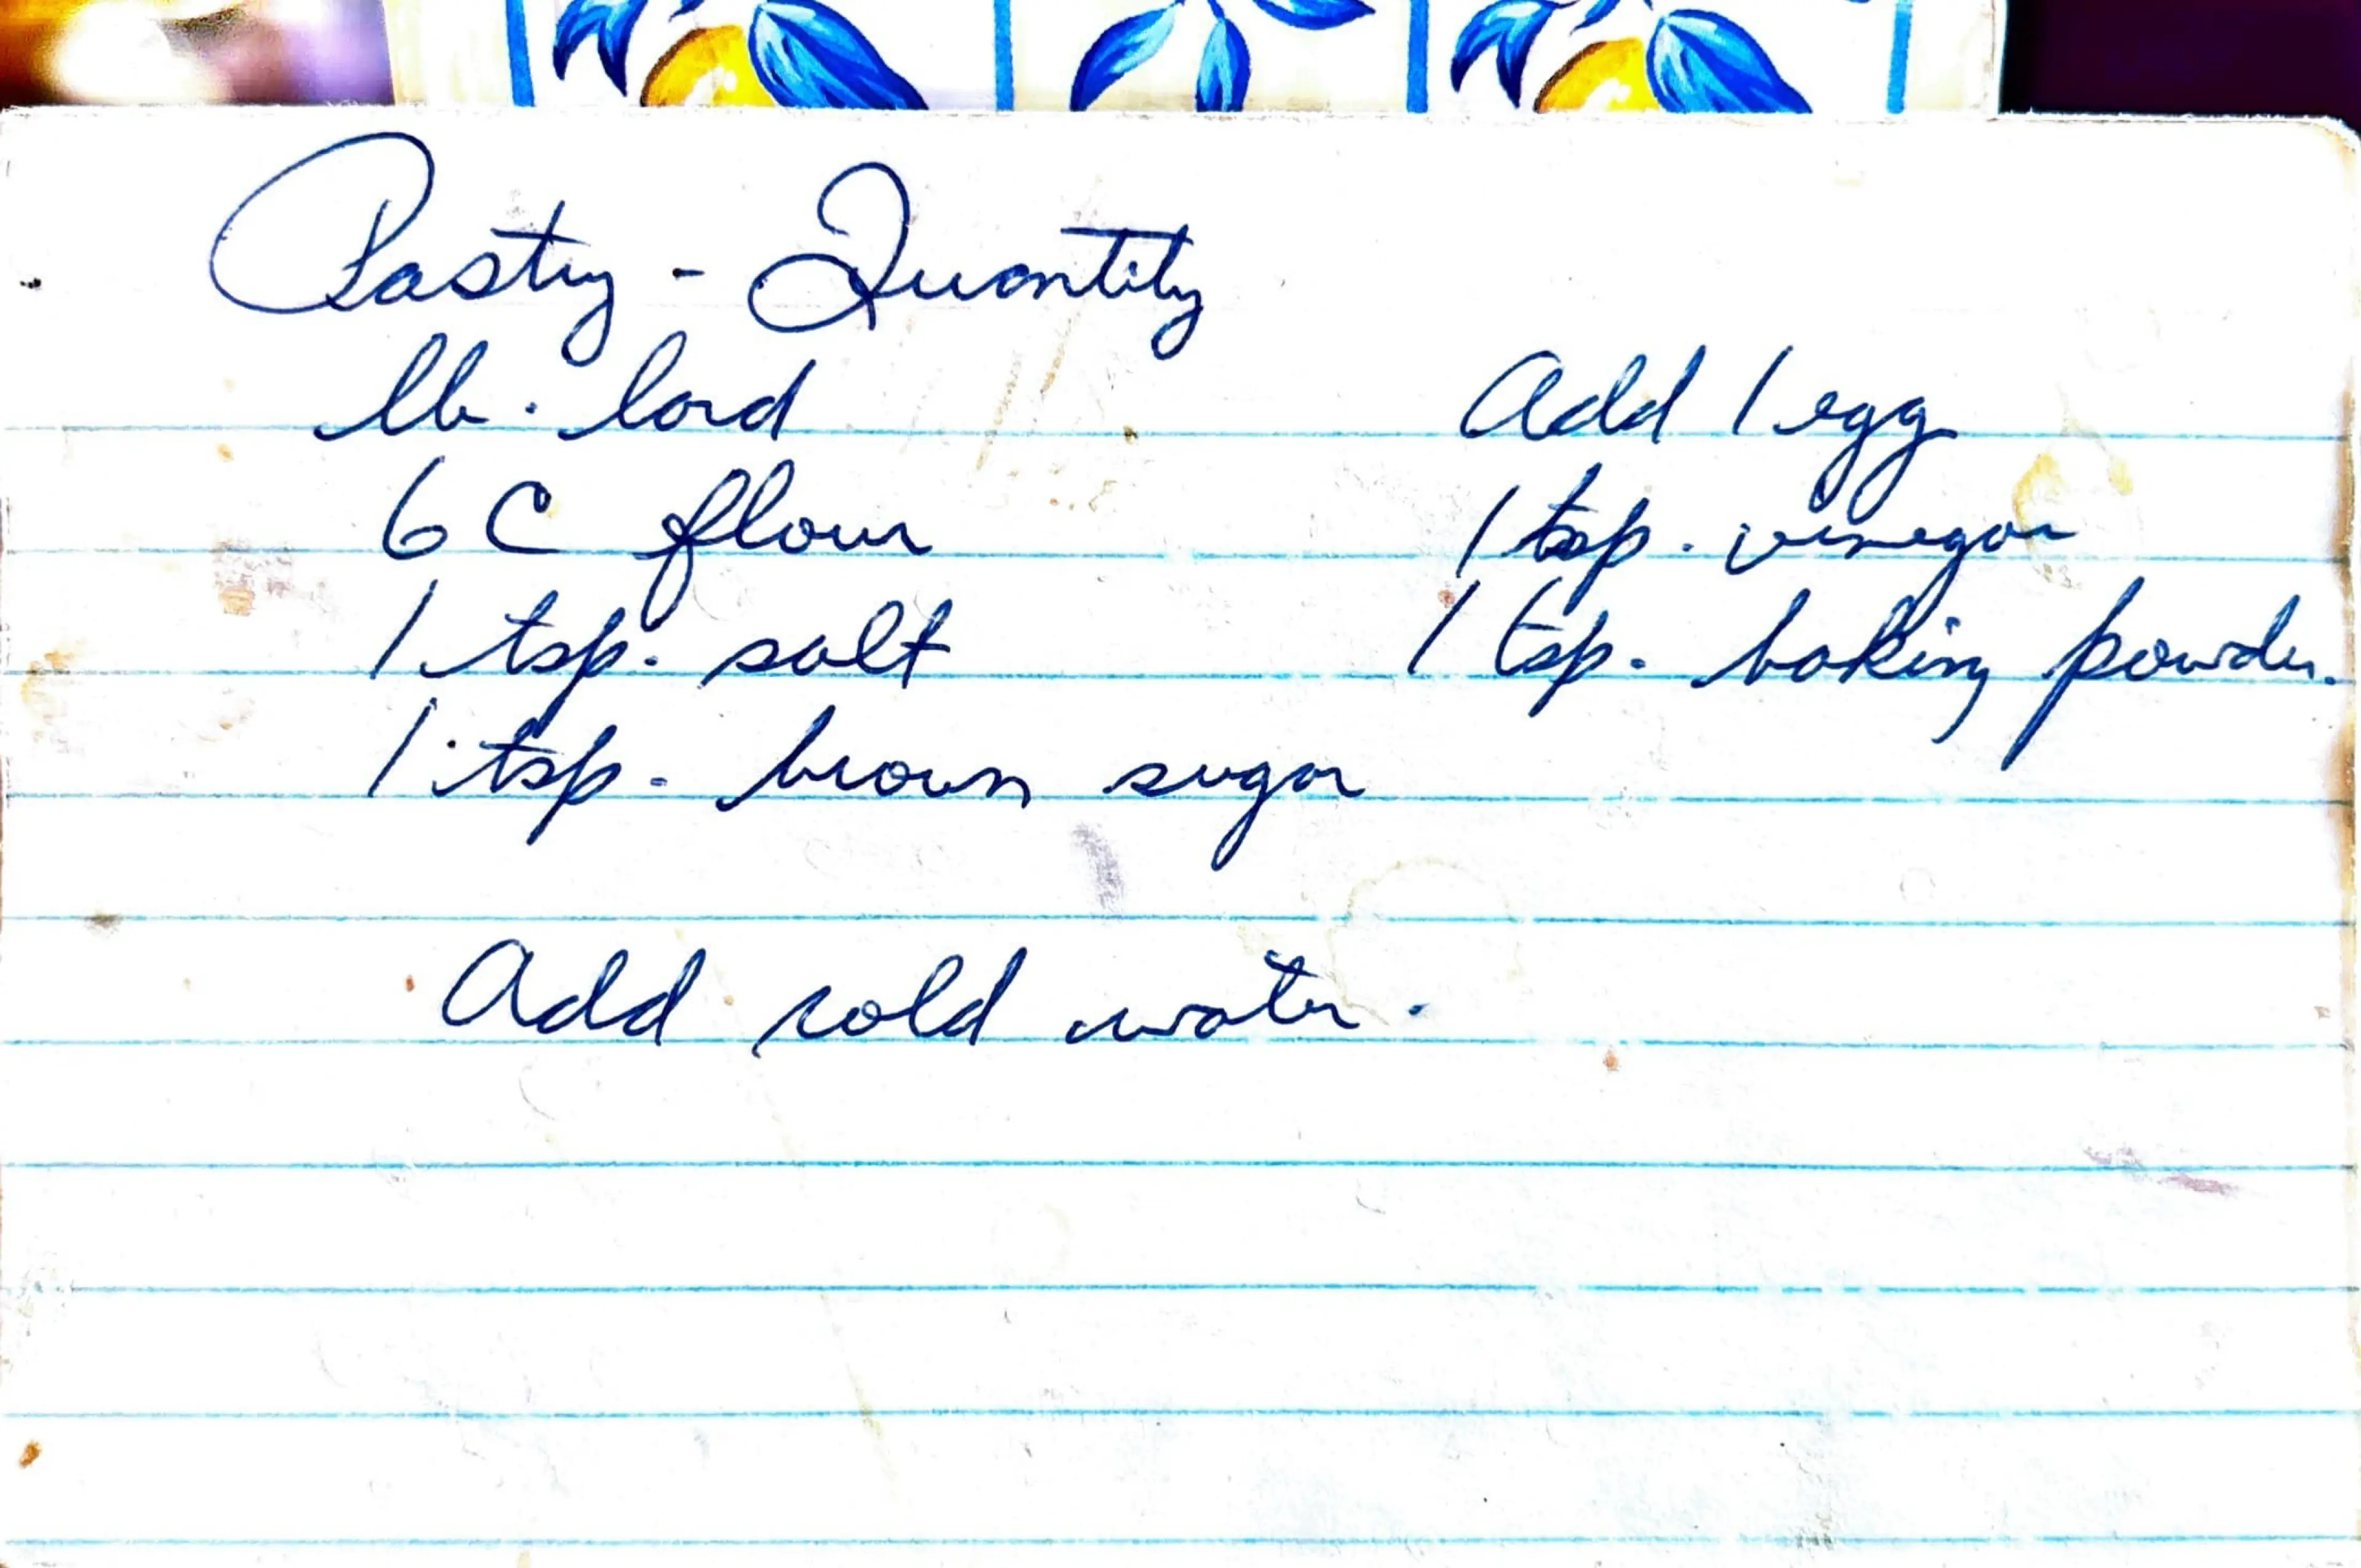 Pastry - Quantity
lb. lard
6 C flour
1 tsp. salt
1 tsp. brown sugar
Add 1 egg
1 tsp. vinegar
1 tsp. baking powder.
Add cold water.